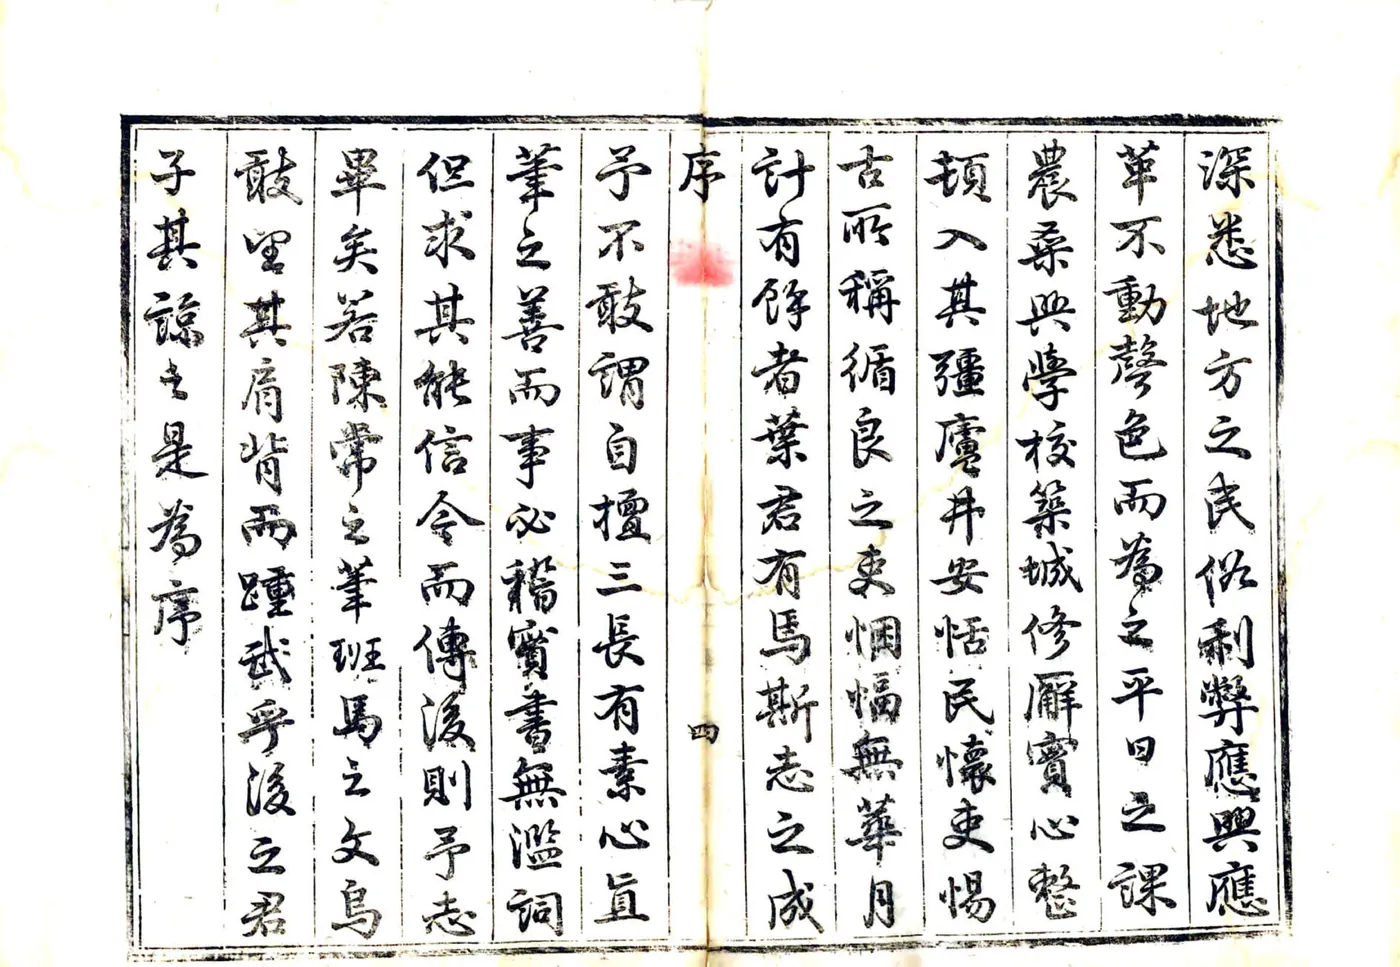 深悉地方之民俗利弊應興應
革不動聲色而為之平日之課
農桑興學校築城修廨實心整
頓入其疆廬井安恬民懷吏惕
古所稱循良之吏悃愊無華月
計有餘者葉君有焉斯志之成
序
四
予不敢謂自擅三長有素心直
筆之善而事必稽實書無濫詞
但求其能信今而傳後則予志
畢矣若陳常之筆班馬之文烏
敢望其肩背而踵武乎後之君
子其諒之是為序